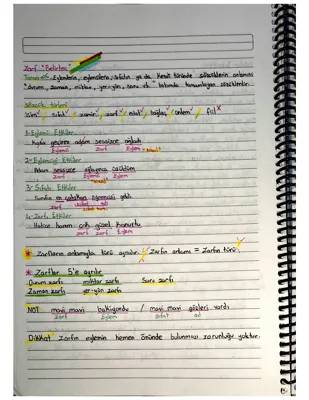 Zarf "Belirteç"
Tanımı: Eylemlerin, eylemsilerin, sıfatın ya da kendi türünde sözcüklerin anlamını
"durum, zaman, miktar, yer-yön, soru vb." bakımda tamamlayan sözcüklerdir.
Sözcük türleri
isim sıfat zamir zarf edat bağlaç ünlem fiil
1- Eylemi Etkiler
adam sessizce ağladı
Eylemsi Zarf Eylem
2- Eylemsiyi Etkiler
Adam sessizce ağlayınca üzüldüm
Zarf Eylemsi Eylem
3- Sıfatı Etkiler
Sınıfın en çalışkan öğrencisi geldi.
Zarf
4- Zarfı Etkiler
Hatice hanım çok güzel konuştu
Zarf Zarf Eylem
* Zarfların anlamıyla türü aynıdır. Zarfın anlamı = Zarfın türü
* Zarflar 5'e ayrılır
Durum zarfı miktar zarfı Soru zarfı
Zaman zarfı yer-yön zarfı
NOT mavi mavi bakıyordu / mavi mavi gözleri vardı
Zarf Eylem Sıfat ad
Dikkat Zarfın eylemin hemen önünde bulunması zorunluğu yoktur.